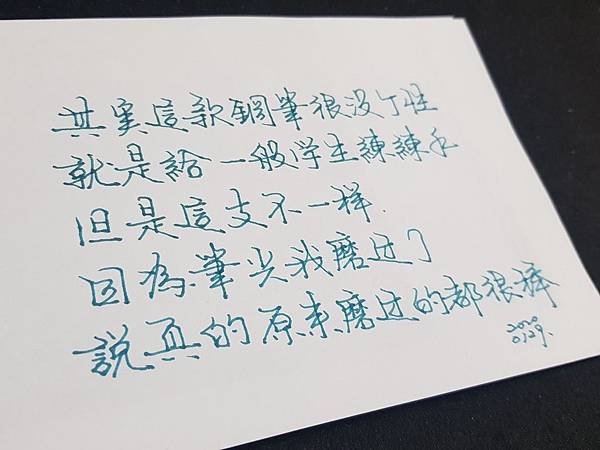 其实這款鋼筆很没个性
就是給一般学生練練手
但是這支不一样.
因為筆尖我磨过了
說真的原來磨过的都很棒
2020
01.29.